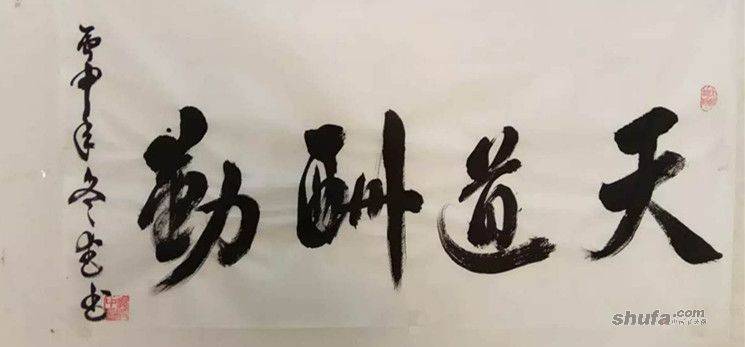 天道酬勤
丙申年冬 书
shufa.com